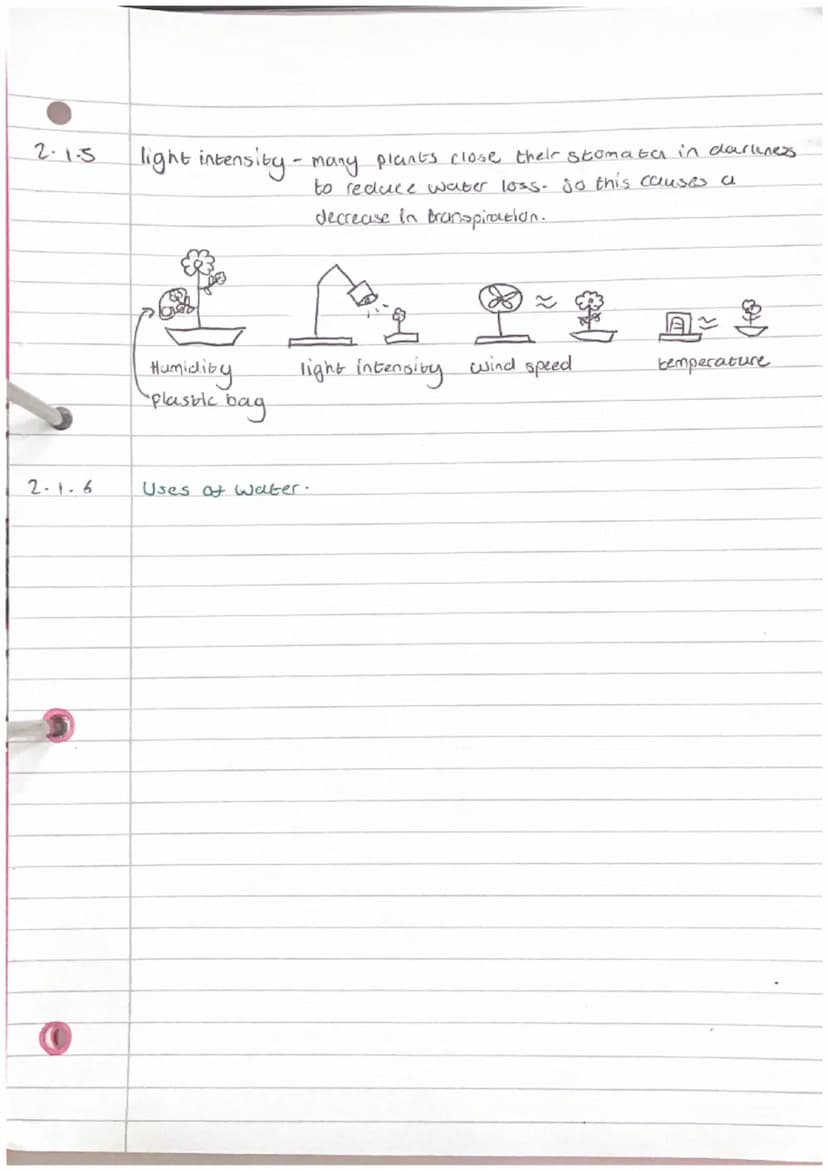 2.1.5 light intensity - many plants close their stomata in darkness
to reduce water loss. So this causes a
decrease in transpiration.
Humidity light intensity wind speed temperature
plastic bag
2.1.6 Uses of water.